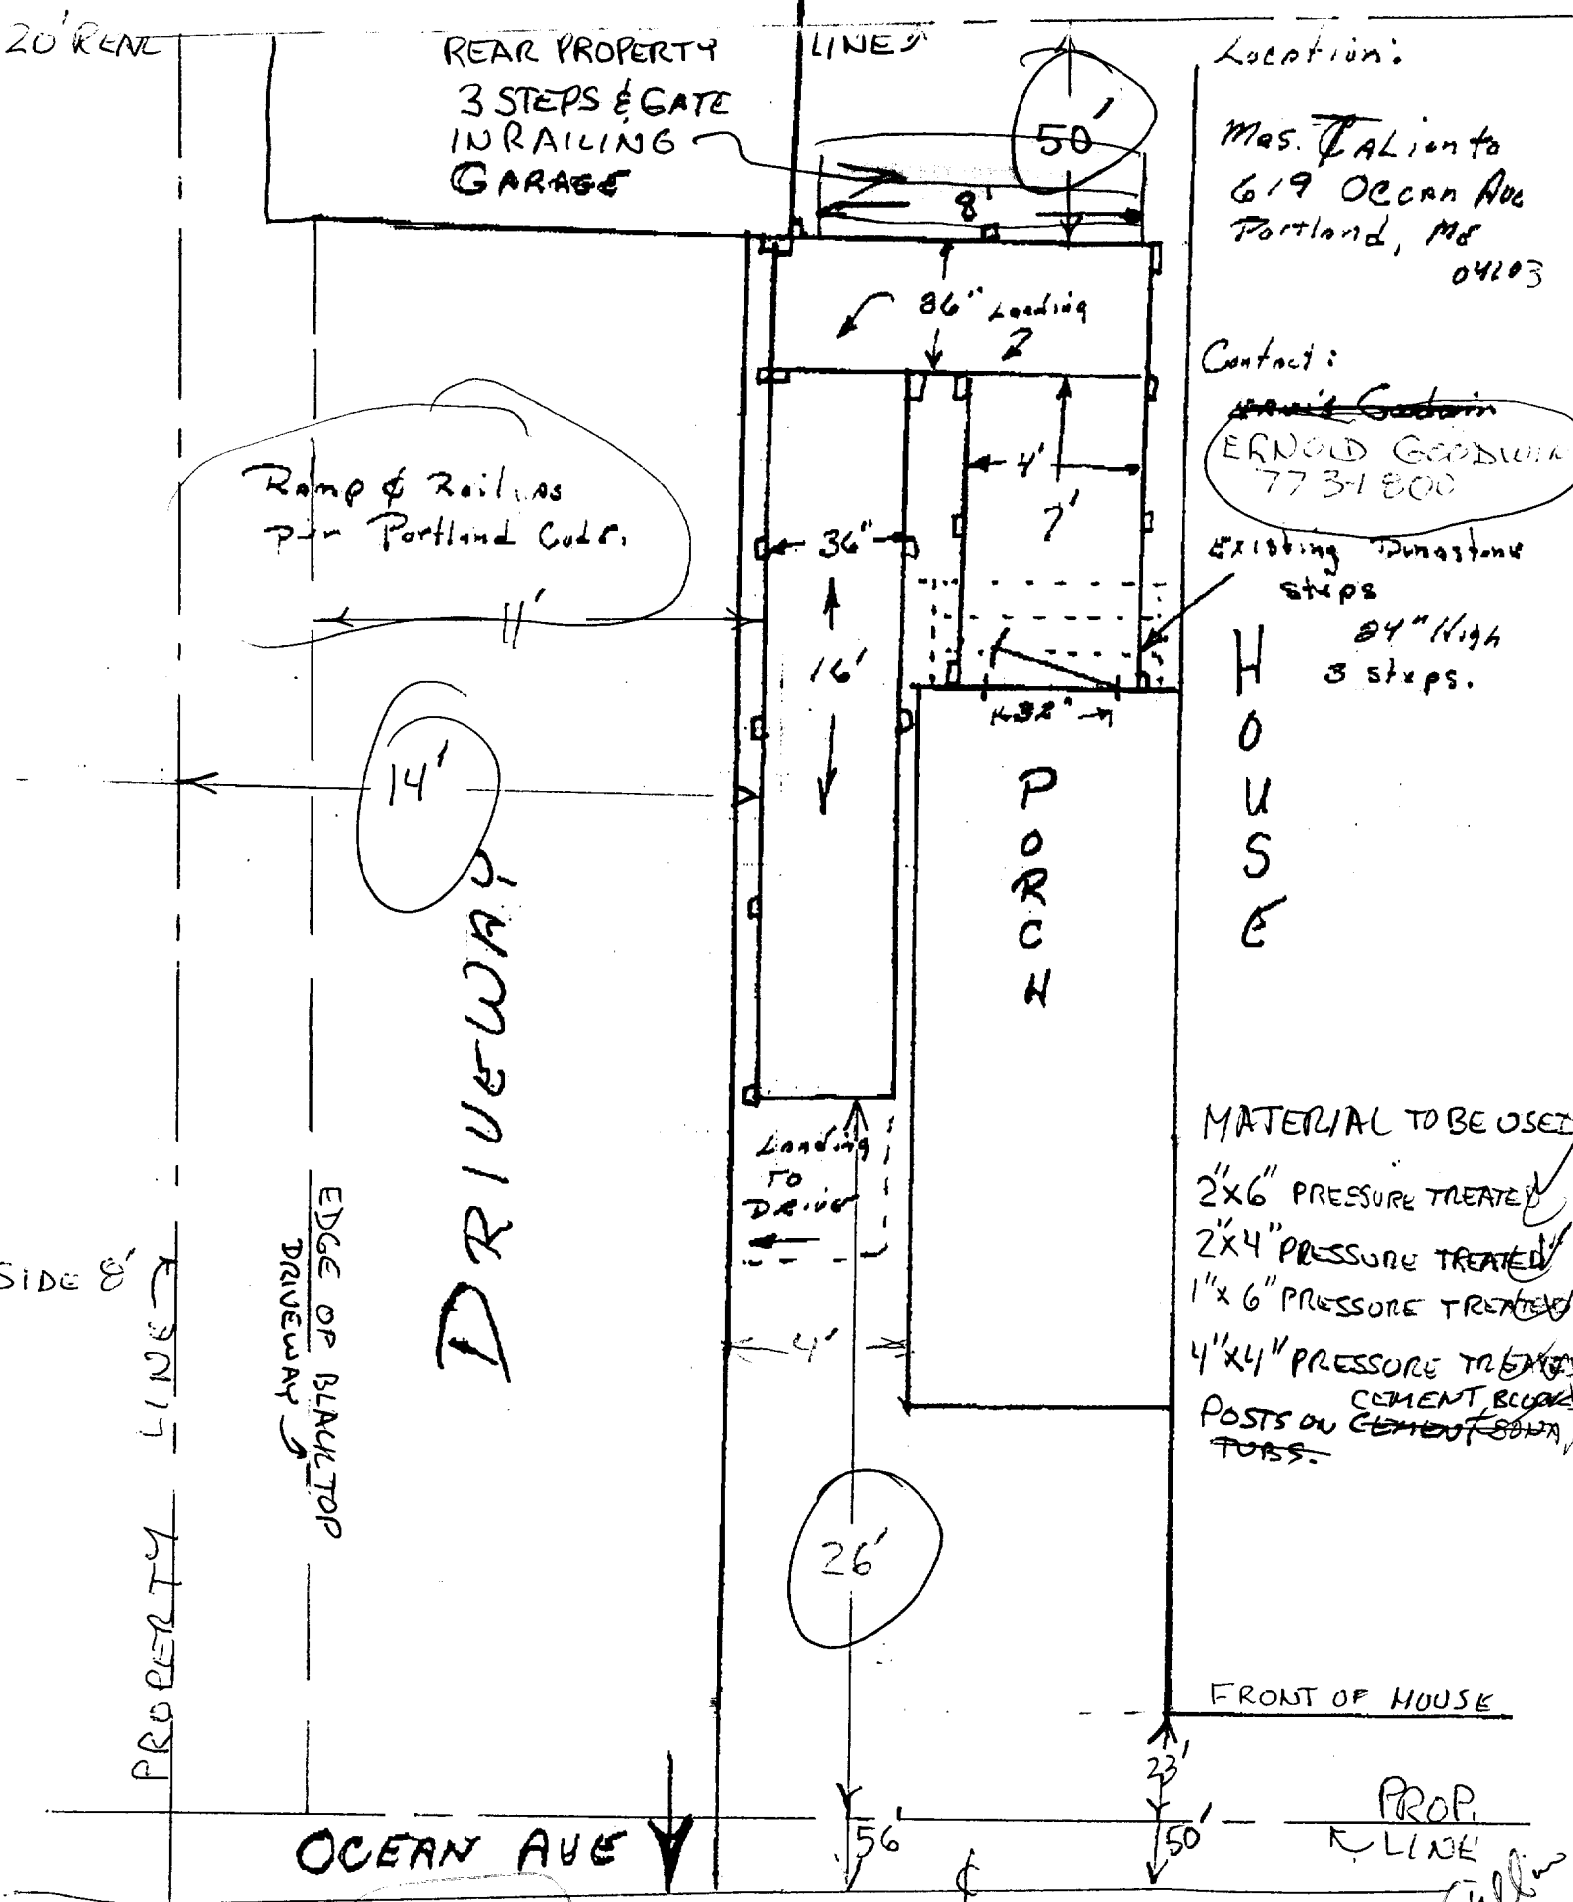 20' REAR
REAR PROPERTY LINE
3 STEPS & GATE
IN RAILING
GARAGE
50'
8'
Location:
Mrs. TALiento
619 OCEAN AVE
Portland, Me
04103
36" Landing
2
Contact:
ERNOLD GOODWIN
773-1800
Ramp & Rail, as
per Portland Code.
4'
7'
36"
Existing Dunastone
steps
24" High
3 steps.
11'
16'
32"
14'
HOUSE
PORCH
DRIVEWAY
Landing
TO
DRIVE
MATERIAL TO BE USED
2"X6" PRESSURE TREATED
2"X4" PRESSURE TREATED
1"X6" PRESSURE TREATED
4"X4" PRESSURE TREATED
CEMENT BLOCKS
POSTS ON CEMENT SONA
TUBS.
SIDE 8'
PROPERTY LINE
EDGE OF BLACKTOP
DRIVEWAY
4'
26'
FRONT OF HOUSE
23'
PROP.
LINE
OCEAN AVE
56
50'